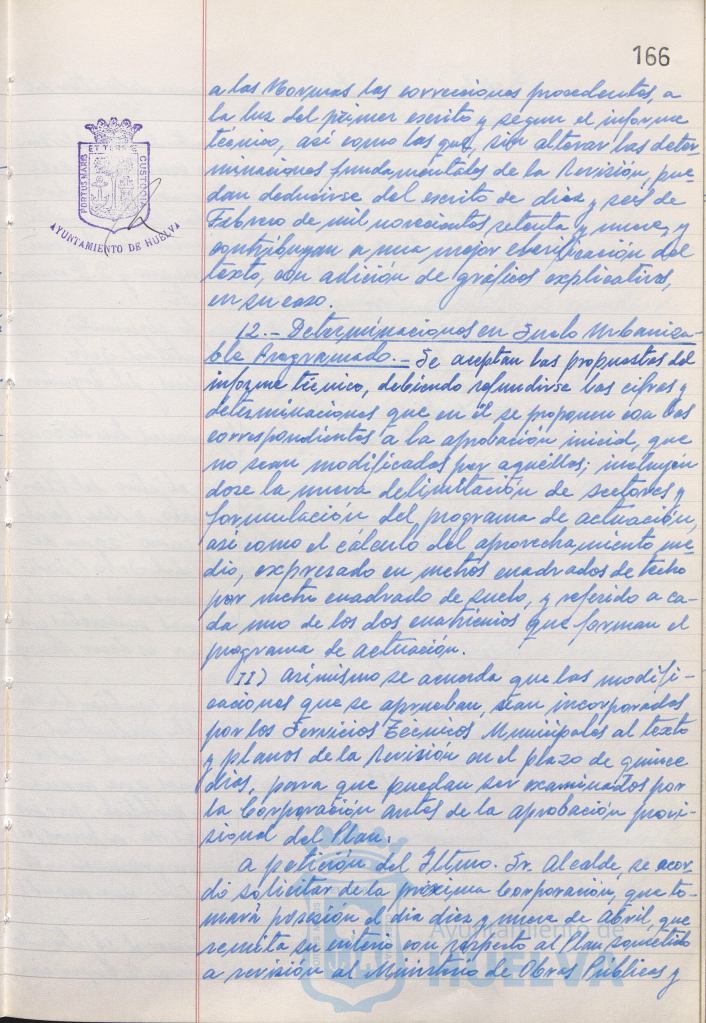 166
PORTUS MARIS
ET TERRE
CUSTODIA
AYUNTAMIENTO DE HUELVA
a las Normas las correcciones procedentes, a
la luz del primer escrito y segun el informe
técnico, así como las que, sin alterar las deter-
minaciones fundamentales de la Revisión, pue-
dan deducirse del escrito de diez y seis de
Febrero de mil novecientos setenta y nueve, y
contribuyan a una mejor clarificación del
texto, con adición de gráficos explicativos,
en su caso.
12.- Determinaciones en Suelo Urbaniza-
ble Programado.- Se aceptan las propuestas del
informe técnico, debiendo refundirse las cifras y
determinaciones que en él se proponen con las
correspondientes a la aprobación inicial, que
no sean modificadas por aquéllas; incluyén
dose la nueva delimitación de sectores y
formulación del programa de actuación,
así como el cálculo del aprovechamiento me-
dio, expresado en metros cuadrados de techo
por metro cuadrado de suelo, y referido a ca-
da uno de los dos cuatrienios que forman el
programa de actuación.
II) Asimismo se acuerda que las modifi-
caciones que se aprueban, sean incorporadas
por los Servicios Técnicos Municipales al texto
y planos de la Revisión en el plazo de quince
días, para que puedan ser examinados por
la Corporación antes de la aprobación provi-
sional del Plan.
A petición del Iltmo. Sr. Alcalde, se acor
dó solicitar de la próxima Corporación, que to-
mará posesión el día diez y nueve de Abril, que
remita su criterio con respecto al Plan sometido
a revisión al Ministerio de Obras Públicas y
Ayuntamiento de
HUELVA